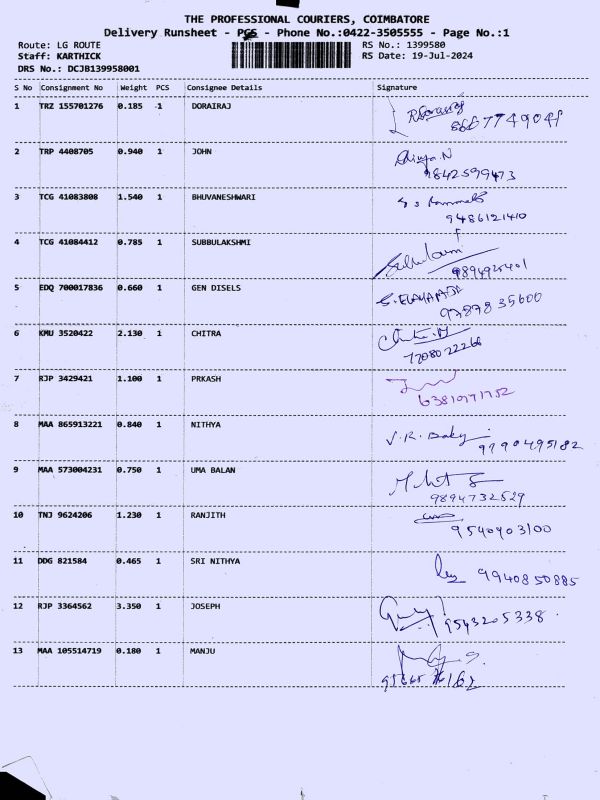 THE PROFESSIONAL COURIERS, COIMBATORE
Delivery Runsheet - PCS - Phone No.:0422-3505555 - Page No.:1
Route: LG ROUTE RS No.: 1399580
Staff: KARTHICK RS Date: 19-Jul-2024
DRS No.: DCJB139958001
S No Consignment No Weight PCS Consignee Details Signature
1 TRZ 155701276 0.185 1 DORAIRAJ
2 TRP 4408705 0.940 1 JOHN
9842599473
3 TCG 41083808 1.540 1 BHUVANESHWARI
9486121410
4 TCG 41084412 0.785 1 SUBBULAKSHMI
5 EDQ 700017836 0.660 1 GEN DISELS
97878 35600
6 KMU 3520422 2.130 1 CHITRA
7708022266
7 RJP 3429421 1.100 1 PRKASH
8 MAA 865913221 0.840 1 NITHYA V.R. Baby
9790495182
9 MAA 573004231 0.750 1 UMA BALAN
9894732529
10 TNJ 9624206 1.230 1 RANJITH
9540403100
11 DDG 821584 0.465 1 SRI NITHYA
9940850885
12 RJP 3364562 3.350 1 JOSEPH
9543205338
13 MAA 105514719 0.180 1 MANJU